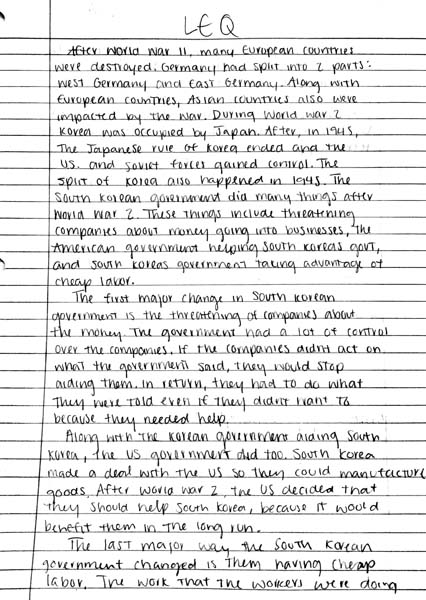 LEQ
After World War II, many European countries
were destroyed. Germany had split into 2 parts:
West Germany and East Germany. Along with
European countries, Asian countries also were
impacted by the war. During World War 2
Korea was occupied by Japan. After, in 1945,
The Japanese rule of Korea ended and the
U.S. and Soviet forces gained control. The
split of Korea also happened in 1945. The
South Korean government did many things after
World War 2. These things include threatening
companies about money going into businesses, the
American government helping South Koreas govt,
and South Koreas government taking advantage of
cheap labor.
The first major change in South Korean
government is the threatening of companies about
the money. The government had a lot of control
over the companies. If the companies didnt act on
what the government said, they would stop
aiding them. In return, they had to do what
They were told even if they didnt want to
because they needed help.
Along with the Korean government aiding South
Korea, the US government did too. South Korea
made a deal with the US so they could manufacture
goods. After World War 2, the US decided that
they should help South Korea, because it would
benefit them in the long run.
The last major way the South Korean
government changed is them having cheap
labor. The work that the workers were doing